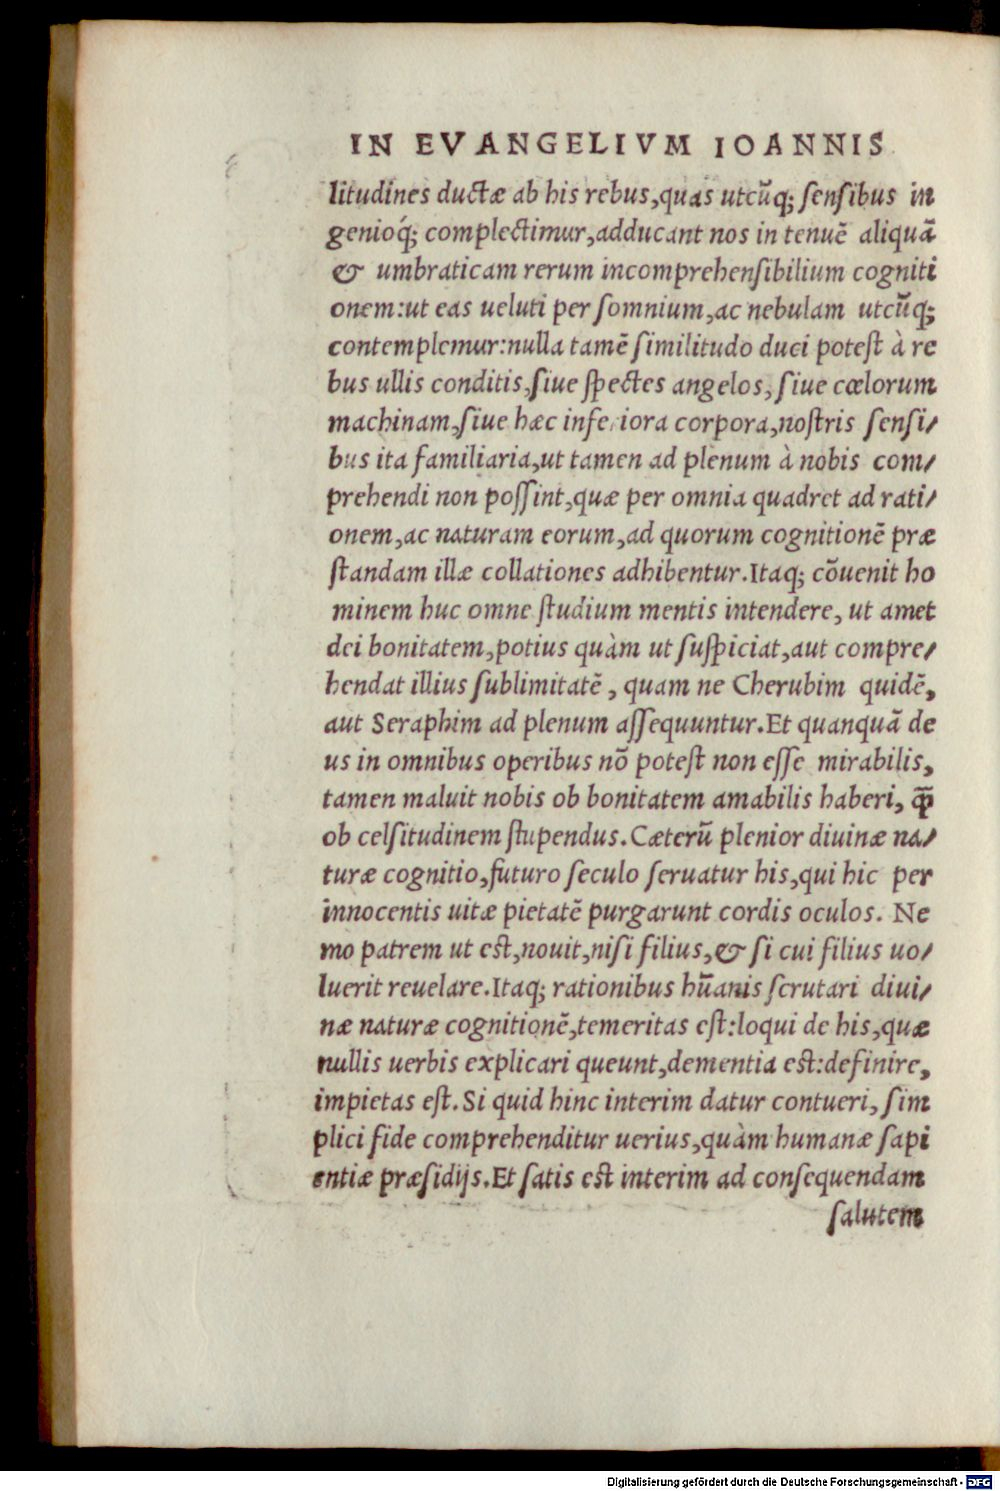 IN EVANGELIVM IOANNIS
litudines ductæ ab his rebus,quas utcūq; sensibus in
genioq́; complectimur,adducant nos in tenuē aliquā
& umbraticam rerum incomprehensibilium cogniti
onem:ut eas ueluti per somnium,ac nebulam utcūq;
contemplemur:nulla tamē similitudo duci potest à re
bus ullis conditis,siue spectes angelos,siue cœlorum
machinam,siue hæc inferiora corpora,nostris sensi/
bus ita familiaria,ut tamen ad plenum à nobis com/
prehendi non possint,quæ per omnia quadret ad rati/
onem,ac naturam eorum,ad quorum cognitionē præ
standam illæ collationes adhibentur.Itaq; cōuenit ho
minem huc omne studium mentis intendere, ut amet
dei bonitatem,potius quàm ut suspiciat,aut compre/
hendat illius sublimitatē, quam ne Cherubim quidē,
aut Seraphim ad plenum assequuntur.Et quanquā de
us in omnibus operibus nō potest non esse mirabilis,
tamen maluit nobis ob bonitatem amabilis haberi, q̄ꝑ
ob celsitudinem stupendus.Cæterū plenior diuinæ na/
turæ cognitio,futuro seculo seruatur his,qui hic per
innocentis uitæ pietatē purgarunt cordis oculos. Ne
mo patrem ut est,nouit,nisi filius,& si cui filius uo/
luerit reuelare.Itaq; rationibus hūanis scrutari diui/
næ naturæ cognitionē,temeritas est:loqui de his,quæ
nullis uerbis explicari queunt,dementia est:definire,
impietas est.Si quid hinc interim datur contueri, sim
plici fide comprehenditur uerius,quàm humanæ sapi
entiæ præsidijs.Et satis est interim ad consequendam
salutem
Digitalisierung gefördert durch die Deutsche Forschungsgemeinschaft - DFG